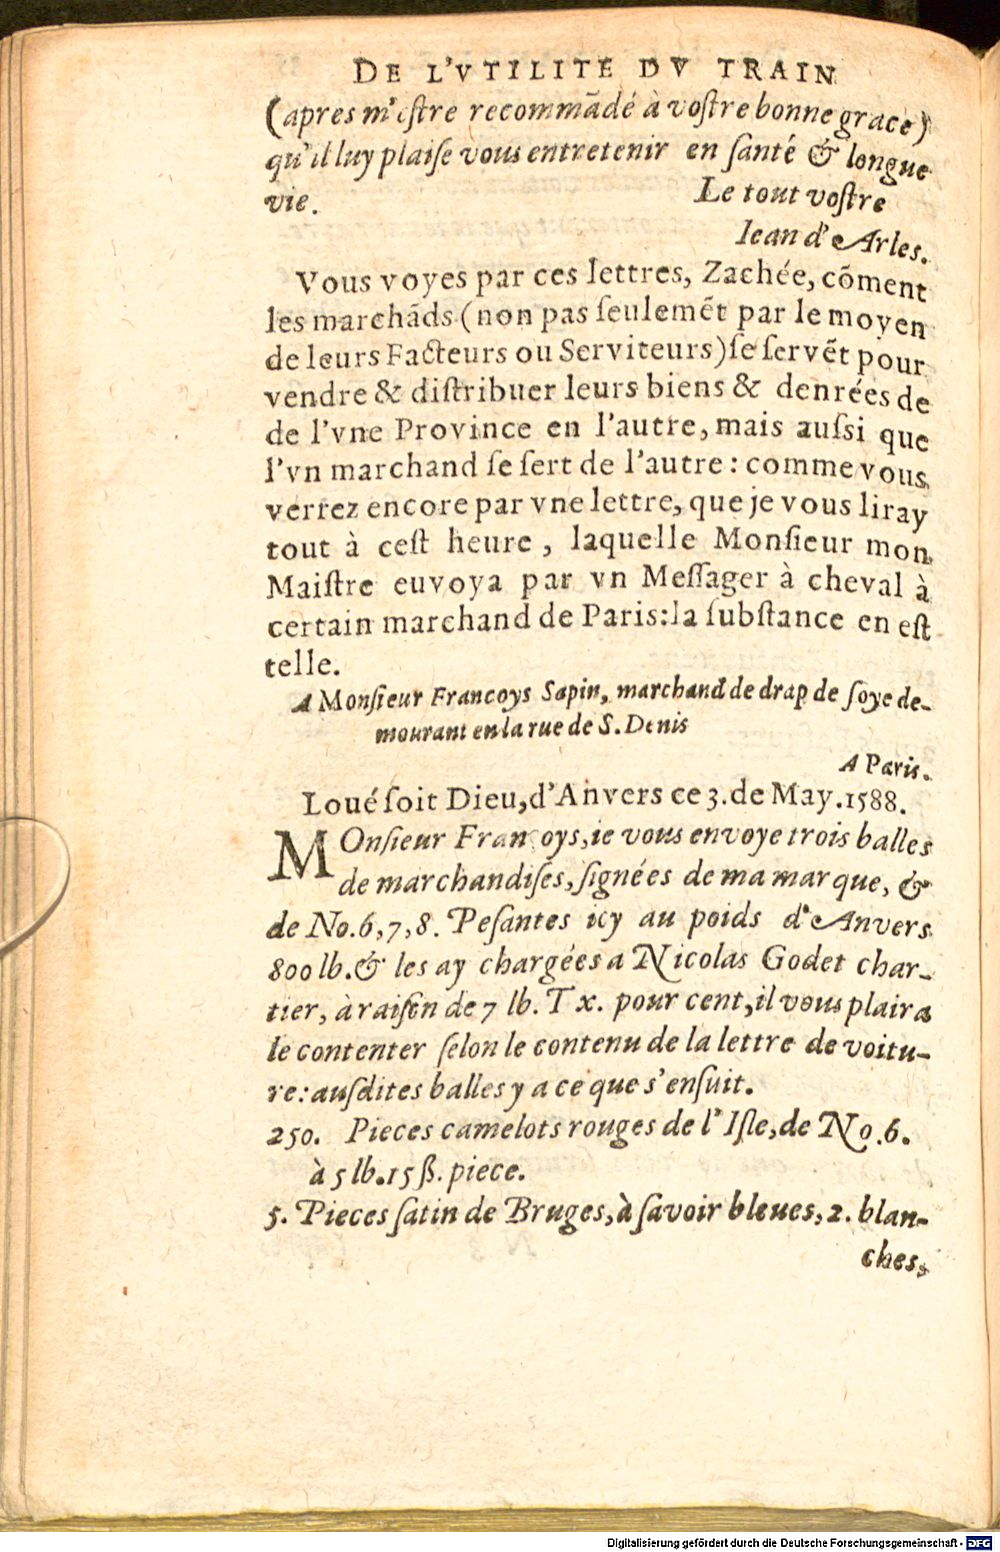 DE L'VTILITE DV TRAIN
(apres m'estre recommãdé à vostre bonne grace)
qu'il luy plaise vous entretenir en santé & longue
vie. Le tout vostre
Iean d'Arles.
Vous voyes par ces lettres, Zachée, cõment
les marchãds (non pas seulemẽt par le moyen
de leurs Facteurs ou Serviteurs) se servẽt pour
vendre & distribuer leurs biens & denrées de
de l'vne Province en l'autre, mais aussi que
l'vn marchand se sert de l'autre: comme vous
verrez encore par vne lettre, que je vous liray
tout à cest heure, laquelle Monsieur mon
Maistre euvoya par vn Messager à cheval à
certain marchand de Paris: la substance en est
telle.
A Monsieur Francoys Sapin, marchand de drap de soye de-
mourant en la rue de S. Denis
A Paris.
Loué soit Dieu, d'Anvers ce 3. de May. 1588.
MOnsieur Francoys, ie vous envoye trois balles
de marchandises, signées de ma marque, &
de No. 6, 7, 8. Pesantes icy au poids d'Anvers
800 lb. & les ay chargées a Nicolas Godet char-
tier, à raison de 7 lb. Tx. pour cent, il vous plaira
le contenter selon le contenu de la lettre de voitu-
re: ausdites balles y a ce que s'ensuit.
250. Pieces camelots rouges de l'Isle, de No. 6.
à 5 lb. 15 ß. piece.
5. Pieces satin de Bruges, à savoir bleues, 2. blan-
ches,
Digitalisierung gefördert durch die Deutsche Forschungsgemeinschaft - DFG